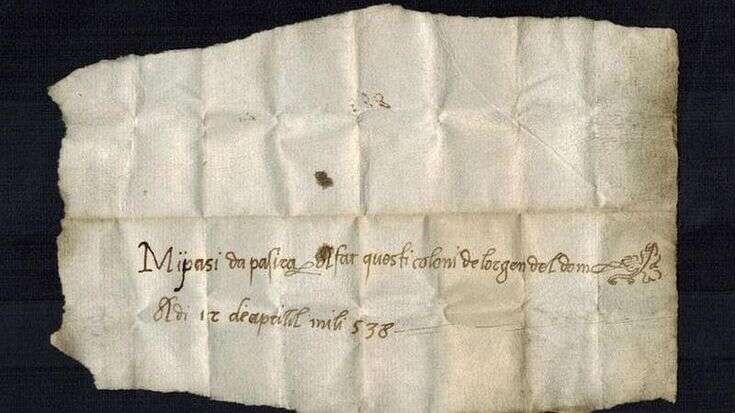 Mi pasi da pasira A far questi coloni de lorgen del dom
A di 12 de aprilil mili 538